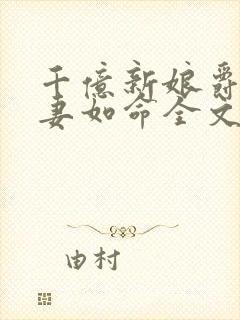 千億新娘爵
妻如命全文
由村